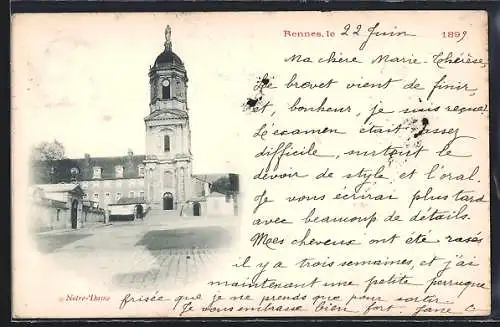 Rennes, le 22 Juin 1899
Ma chère Marie-Thérèse,
Le brevet vient de finir,
et, bonheur, je suis reçue!
L'examen était assez
difficile, surtout le
devoir de style, et l'oral.
Je vous écrirai plus tard
avec beaucoup de détails.
Mes cheveux ont été rasés
il y a trois semaines, et j'ai
maintenant une petite perruque
frisée que je ne prends que pour sortir.
Je vous embrasse bien fort, Jane
Notre-Dame